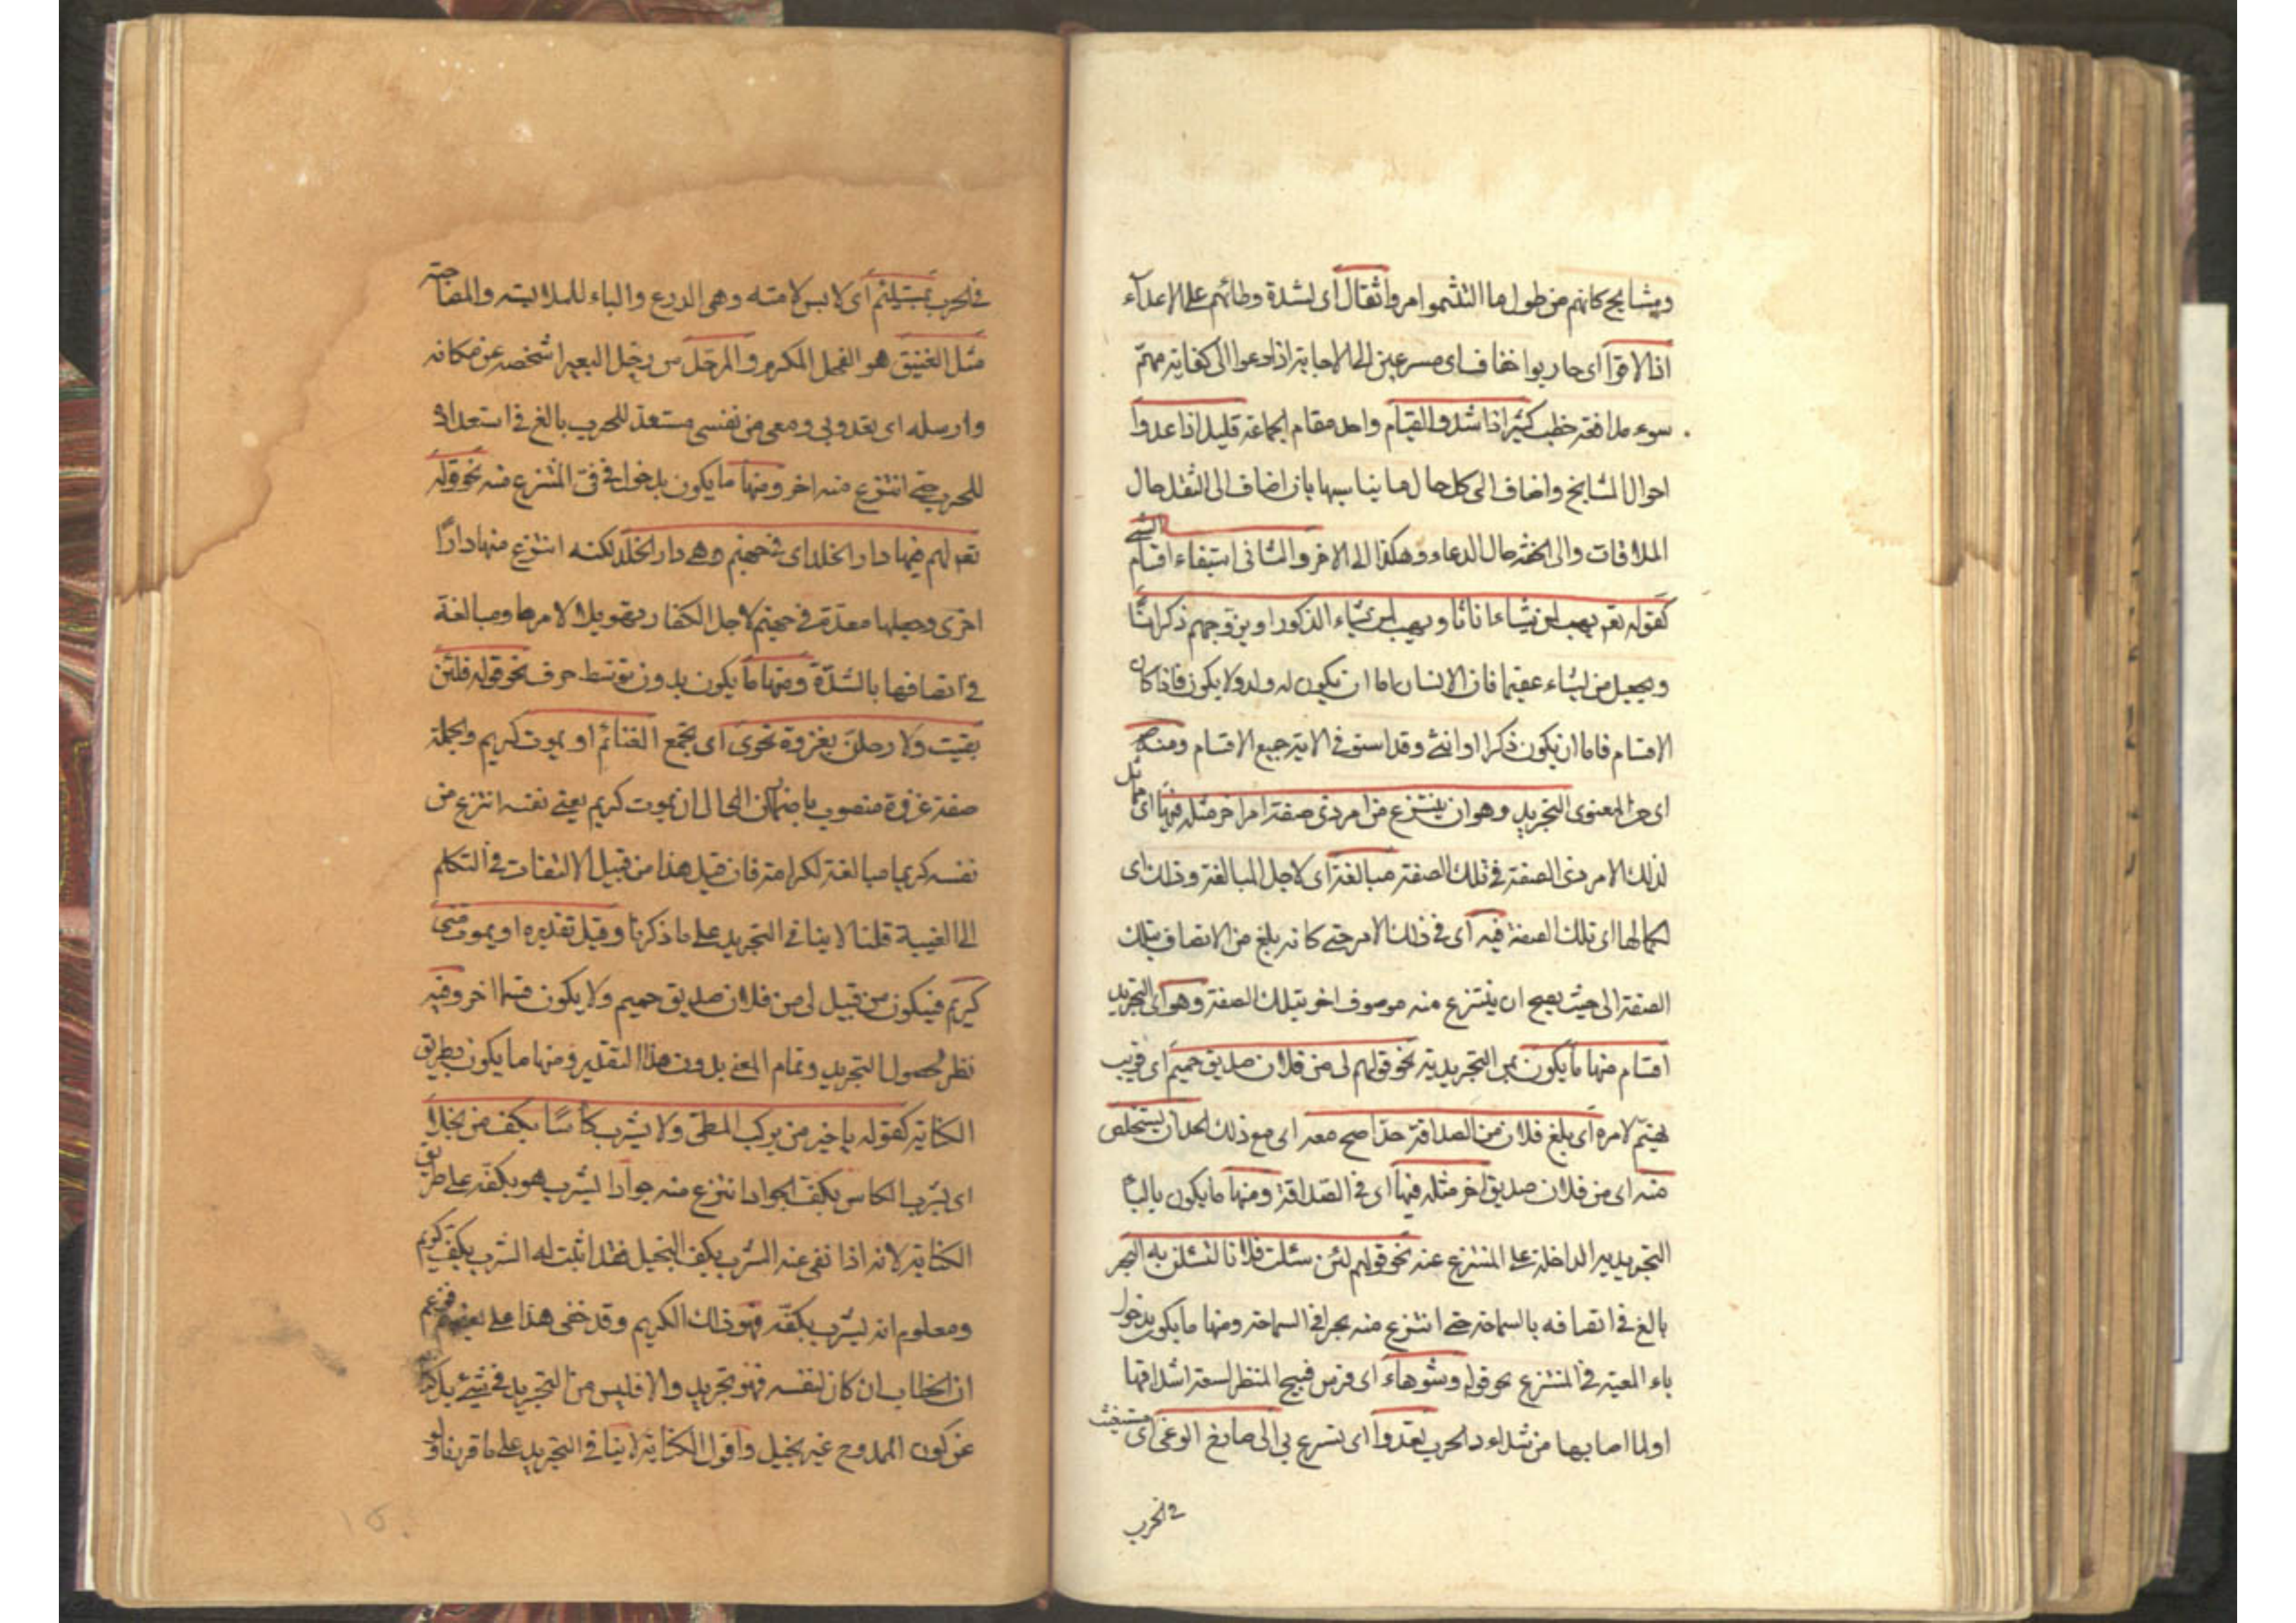 ومشايخ كانهم من طول ما التثموا مرد اثقال اى لشدة وطائهم على الاعداء
اذا لاقوا اى حاربوا خفاف اى مسرعين الى الاجابة اذا دعوا الى كفاية مهمّ
سوء مدافعة خطب كثير اذا شدوا لقيام واحد مقام الجماعة قليل اذا عدوا
احوال المشايخ واضاف الى كل حال ما يناسبها بان اضاف الى الثقل حال
الملاقات والى الخفة حال الدعاء وهكذا الى الاخر والثانى استيفاء اقسام الشئ
كقوله تعم يهب لمن يشاء اناثا ويهب لمن يشاء الذكور او يزوجهم ذكرانا واناثا
ويجعل من يشاء عقيما فان الانسان اما ان يكون له ولد ولا يكون فاذا كان
الاقسام فاما ان يكون ذكرا او انثى وقد استوفى الاية جميع الاقسام ومنه
اى من المعنوى التجريد وهو ان ينتزع من امر ذى صفة امر اخر مثله فيها اى مماثل
لذلك الامر ذى الصفة فى تلك الصفة مبالغة اى لاجل المبالغة وذلك اى
لكمالها اى تلك الصفة فيه اى فى ذلك الامر حتى كانه بلغ من الاتصاف بتلك
الصفة الى حيث يصح ان ينتزع منه موصوف اخر بتلك الصفة وهو اى التجريد
اقسام منها ما يكون بمن التجريدية نحو قولهم لى من فلان صديق حميم اى قريب
يهتمّ لامره اى بلغ فلان من الصداقة حدّا صح معه اى مع ذلك الحد ان يستخلص
منه اى من فلان صديق اخر مثله فيها اى فى الصداقة ومنها ما يكون بالباء
التجريدية الداخلة على المنتزع عنه نحو قولهم لئن سئلت فلانا لتسئلن به البحر
بالغ فى اتصافه بالسماحة حتى انتزع منه بحرا فى السماحة ومنها ما يكون بدخول
باء المعية فى المنتزع نحو قوله وشوهاء اى فرس قبيح المنظر لسعة اشداقها
او لما اصابها من شدايد الحرب تعدوا اى تسرع بى الى صارخ الوغى اى مستغيث
فى الحرب
فى الحرب بمستلئم اى لابس لامته وهى الدرع والباء للملابسة والمصاحبة
مثل الفنيق هو الفحل المكرم والمرحّل من رحّل البعير اشخصه عن مكانه
وارسله اى تعدو بى ومعى من نفسى مستعدّ للحرب بالغ فى استعداده
للحرب حتى انتزع منه اخر ومنها ما يكون بدخول فى فى المنتزع منه نحو قوله
تعم لهم فيها دار الخلد اى فى جهنم وهى دار الخلد لكنه انتزع منها دارًا
اخرى وجعلها معدّة فى جهنم لاجل الكفار تهويلا لامرها ومبالغة
فى اتصافها بالشدّة ومنها ما يكون بدون توسّط حرف نحو قوله فلئن
بقيت ولارحلنّ بغزوة نحوى اى تجمع الغنائم او يموت كريم والجملة
صفة غزوة منصوب باضمار ان اى الى ان يموت كريم يعنى نفسه انتزع من
نفسه كريما مبالغة لكرامته فان قيل هذا من قبيل الالتفات فى التكلم
الى الغيبة قلنا لا ينافى التجريد على ما ذكرنا وقيل تقديره او يموت منى
كريم فيكون من قبيل لى من فلان صديق حميم ولا يكون قسما اخر وفيه
نظر لحصول التجريد وتمام المعنى بدون هذا التقدير ومنها ما يكون بطريق
الكناية كقوله يا خير من يركب المطىّ ولا يشرب كأسًا بكفّ من بخلا
اى يشرب الكاس بكفّ الجواد انتزع منه جوادا يشرب هو بكفّه على طريق
الكناية لانه اذا نفى عنه الشرب بكف البخيل فقد اثبت له الشرب بكف كريم
ومعلوم انه يشرب بكفّه فهو ذلك الكريم وقد خفى هذا على بعضهم فزعم
ان الخطاب ان كان لنفسه فهو تجريد والا فليس من التجريد فى شئ بل كناية
عن كون الممدوح غير بخيل واقول الكناية لا ينافى التجريد على ما قررناه